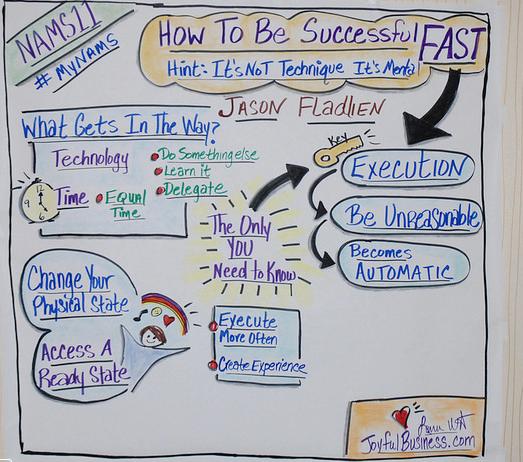 NAMS11
# MYNAMS
How To Be Successful FAST
Hint: It's Not Technique It's Mental
Jason Fladlien
What Gets In The Way?
Technology
Do Something else
Learn it
Delegate
12
9
6
Time
EQUAL
Time
Key
EXECUTION
Be Unreasonable
Becomes
AUTOMATIC
The Only
YOU
Need to Know
Change Your
Physical State
Access A
Ready State
Execute
More Often
Create Experience
JoyfulBusiness.com